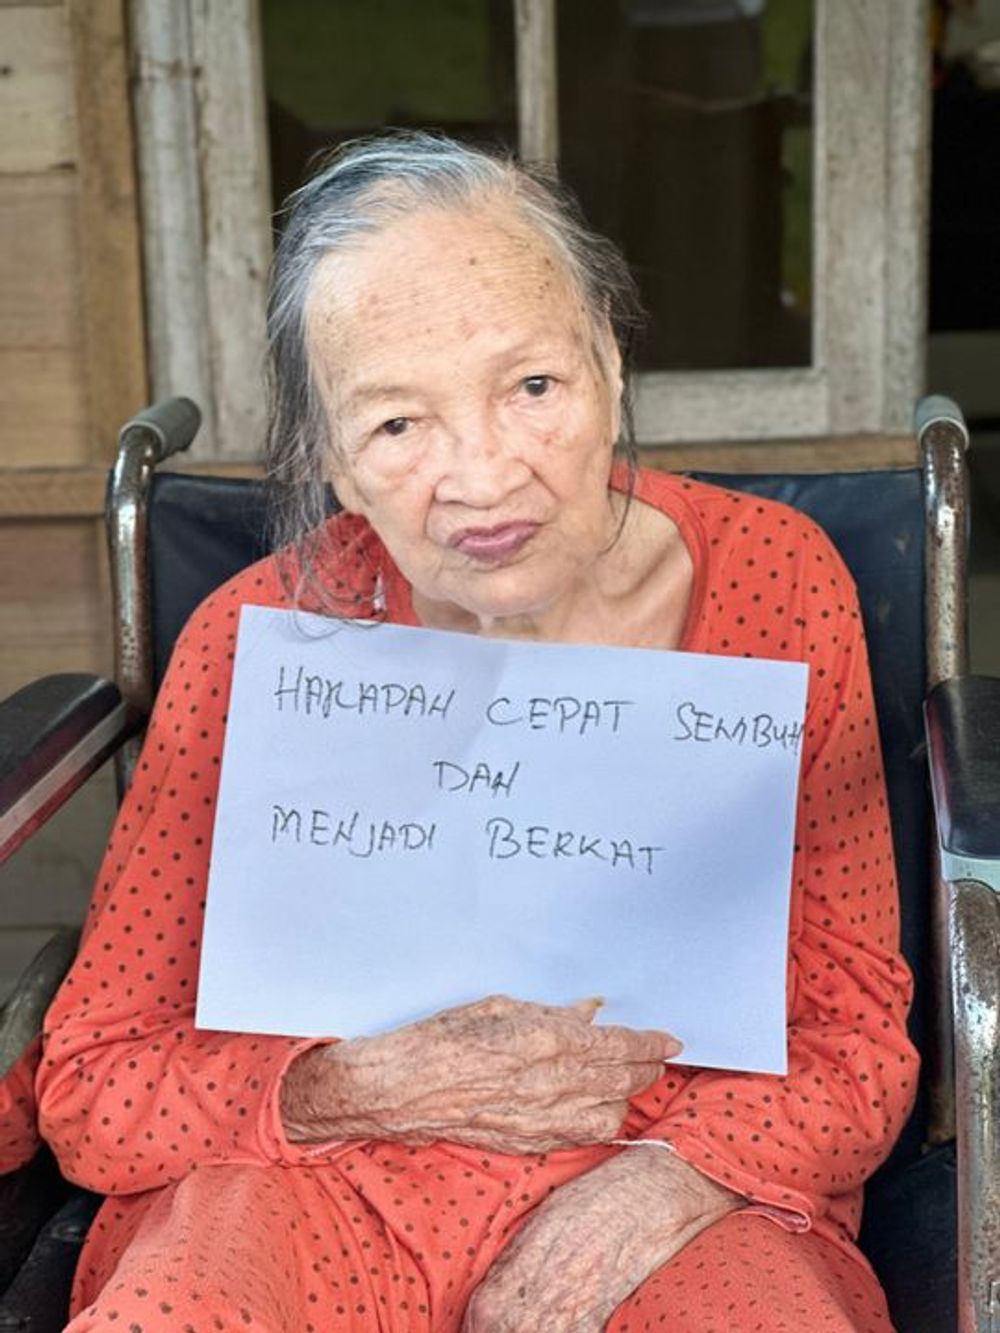 HARAPAN CEPAT SEMBUH
DAN
MENJADI BERKAT